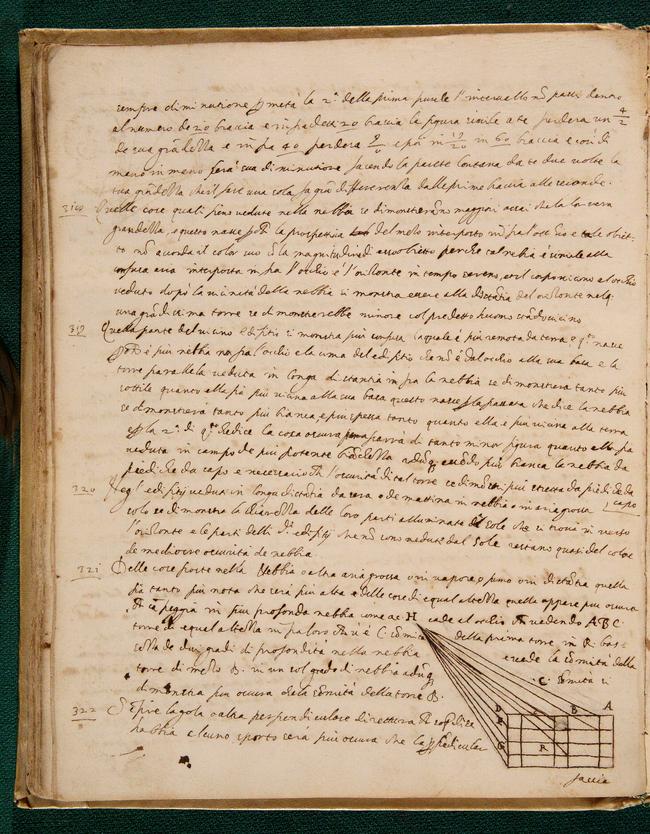 sempre diminutione p metà la 2ª della prima purche l'intervallo nō passi dentro
al numero de 20 braccia e infra detti 20 braccia la figura simile a te perderà un 4/2
de sua grādezza e in fra 40 perderà 9/0 e poi in 19/20 in 60 braccia e così di
mano in mano farà sua diminutione facendo la parete lontana da te due volte la
tua grādezza che il fare una sola fa grā differenza dalle prime braccia alle seconde.
319 Quelle cose quali sieno vedute nella nebbia se dimostreranno maggiori assai che la lor vera
grandezza, e questo nasce la prospettiva del mezo interposto infra l'occhio e tale obiet-
to nō acorda il color suo cō la magnitudine di esso obietto perche tal nebia è simile alla
confusa aria interposta in fra l'occhio e l'orisonte in tempo sereno, et il corpo vicino al occhio
veduto dopo la vicinità della nebbia si mostra essere alla distātia del orisonte nela
una grādissima torre se dimostrerebbe minore col predetto huomo standovi vicino
319 Quella parte del vicino edifitio si mostra più confusa la quale è più remota da terra e qto nasce
è più nebbia infra l'occhio e la cima del edifitio che nō è dal occhio alla sua basa e la
torre parallela veduta in longa distantia in fra la nebbia se dimostrerà tanto più
sottile quanto ella fia più vicina alla sua basa questo nasce p la passata che dice la nebbia
se dimostrerà tanto più bianca, e più spessa tanto quanto ella è più vicina alla terra
e p la 2ª di qto che dice la cosa oscura parrà di tanto minor figura quanto ella fia
veduta in campo de più potente bianchezza adunq essendo più bianca la nebbia da
piedi che da capo è necessario ch l'oscurità di tal torre se dimostri più stretta da piedi che da
capo
320 Negl'edifitij veduti in longa distātia da sera o de mattina in nebbia o in aria grossa
solo se dimostra la chiarezza delle loro parti alluminate dal sole che si trova in verso
l'orisonte e le parti delli dti edifitij che nō sono vedute dal sole restano quasi del color
de mediocre oscurità de nebbia
321 Delle cose poste nella Nebbia o altra aria grossa o in vapore, o fumo o in distātia quella
fia tanto più nota che serà più alta e delle cose di equal altezza quella appare più oscura
ch cāpeggia in più profonda nebbia come ac H cade al occhio H vedendo ABC
torre di equal altezza in fra loro ch vi è C somità della prima torre in R. bas-
sezza de dui gradi di profondità nella nebbia e vede la somità della
torre di mezo B. in un sol grado di nebbia adūq C. somità si
dimostra più oscura che la somità della torre B.
322 Sēpre la gola o altra perpendiculare direttura ch
nebbia alcuno sporto serà più oscura che la ppēdicular
H
D C B A
E
G R
faccia